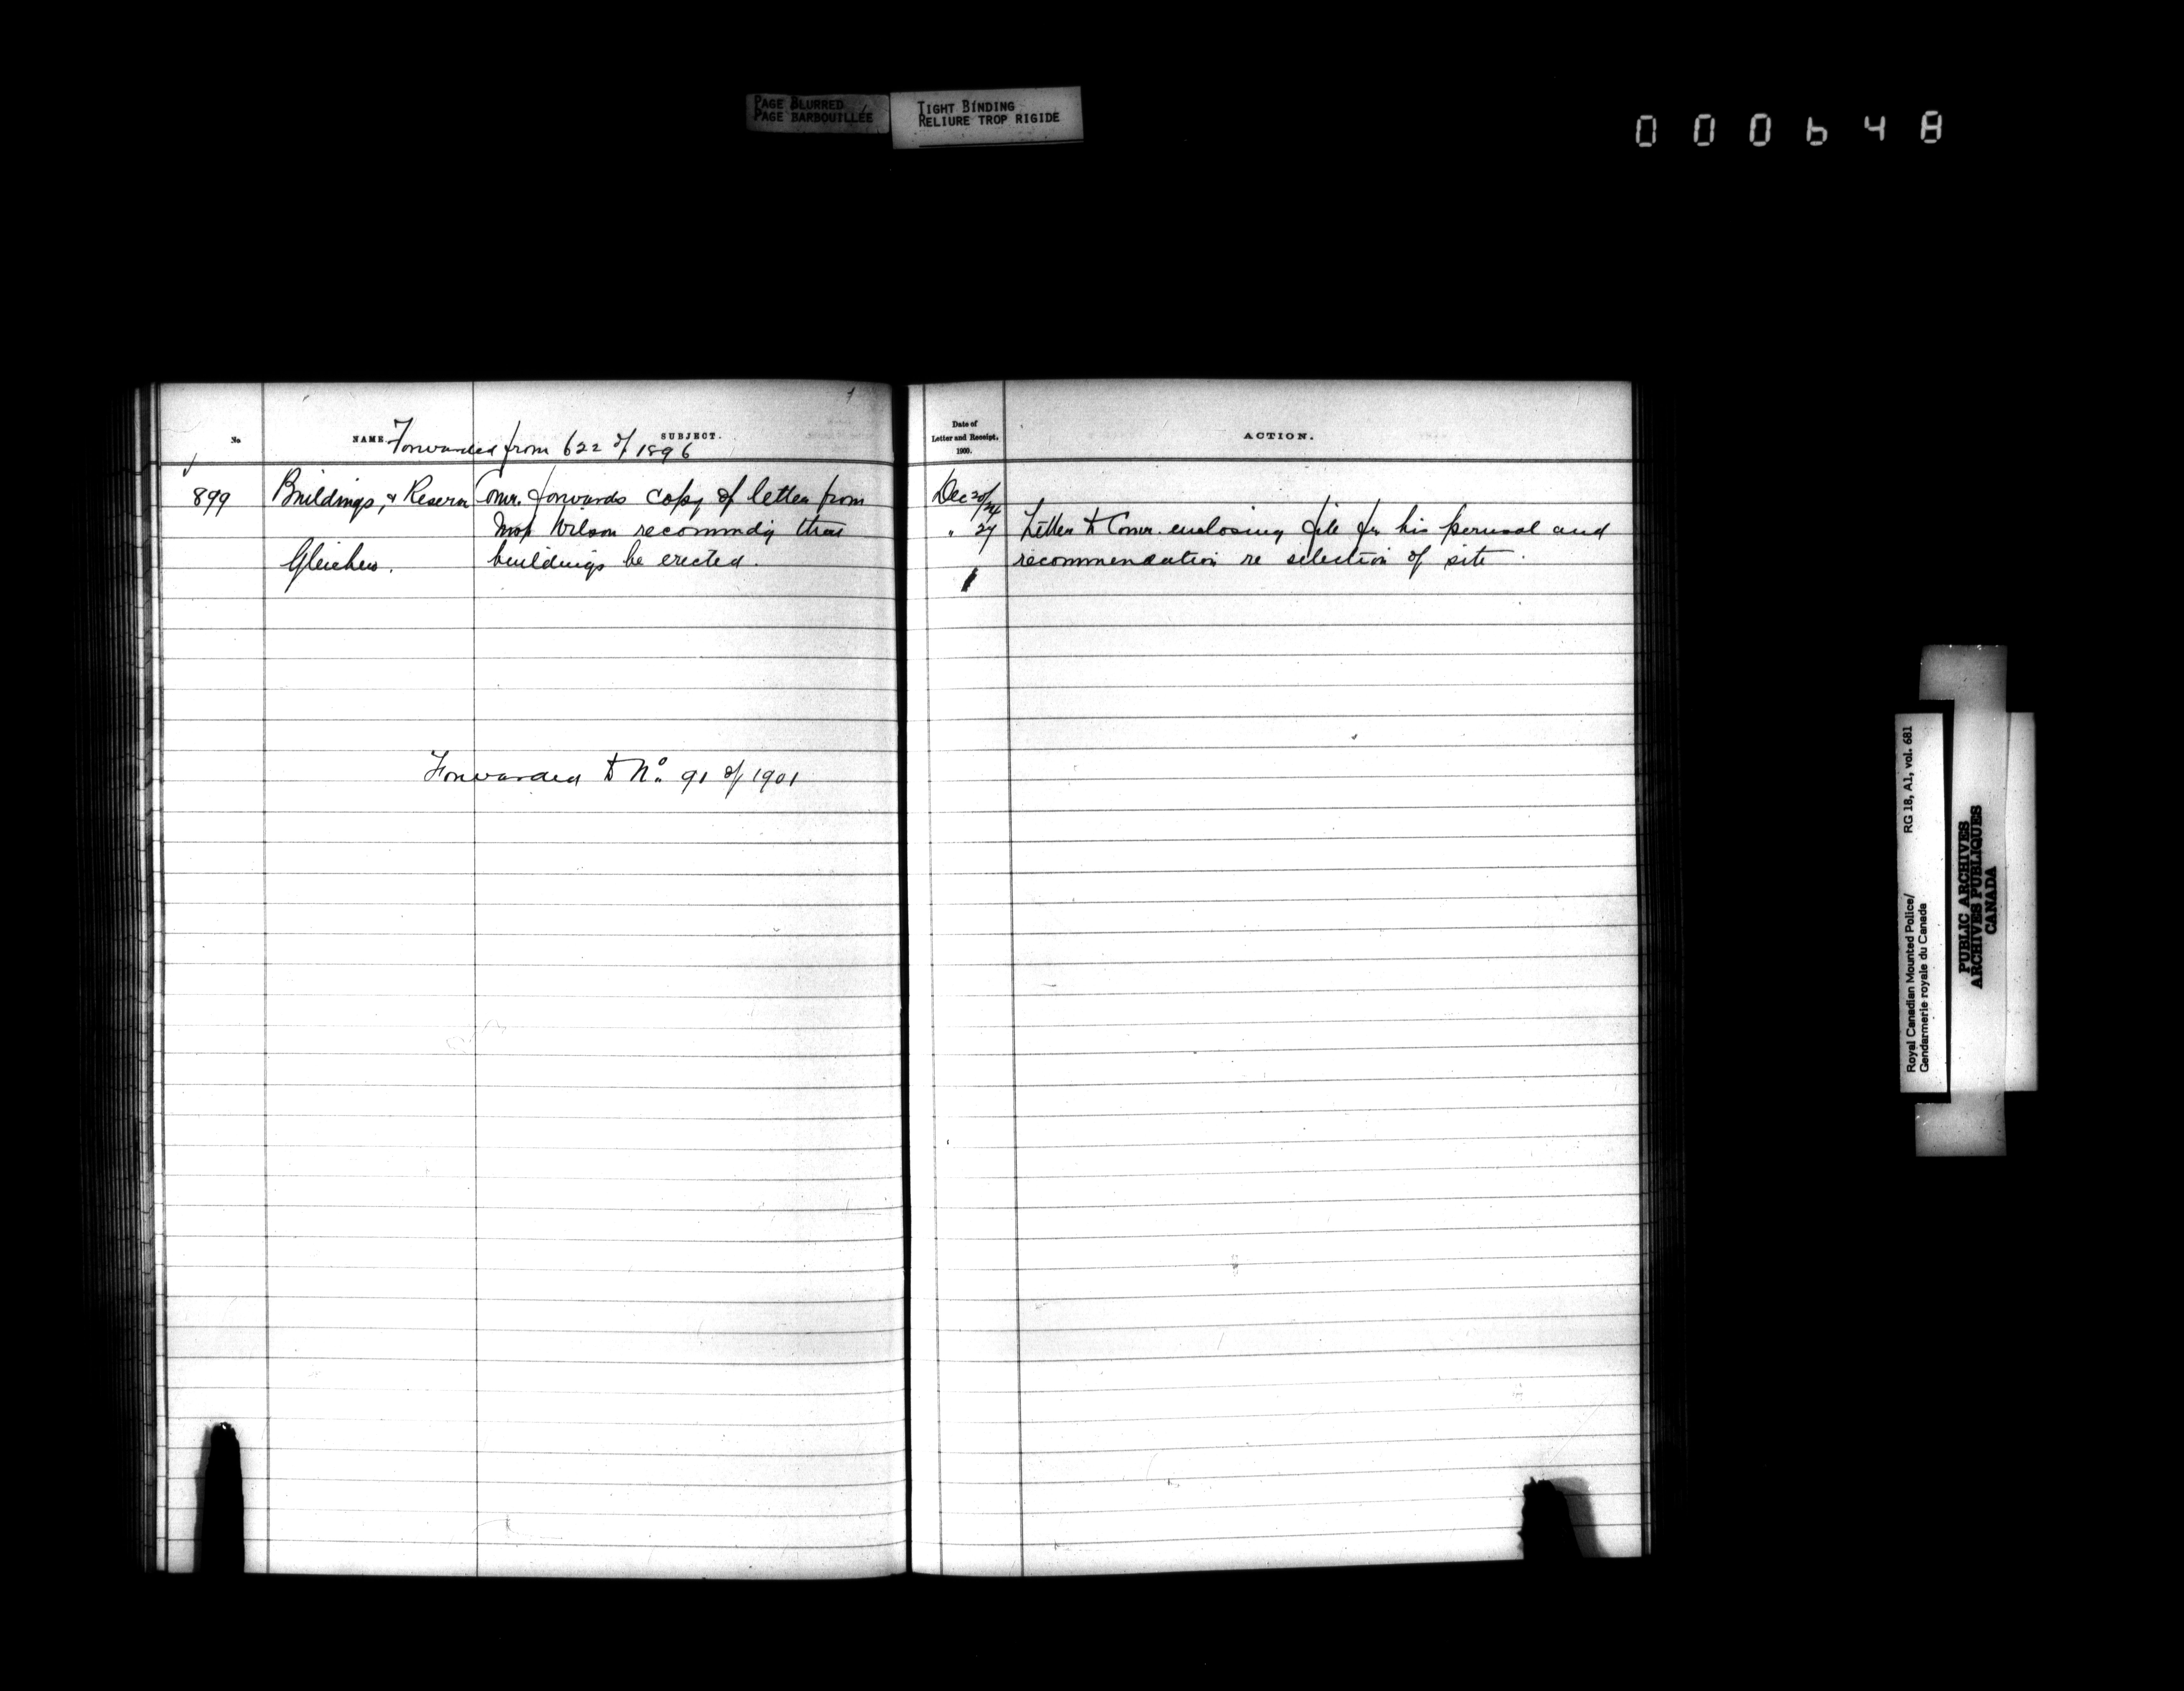 PAGE BLURRED
PAGE BARBOUILLÉE
TIGHT BINDING
RELIURE TROP RIGIDE
000648
No
NAME.
SUBJECT.
Forwarded from 622 of 1896
899
Buildings, & Reserve
Gleichen.
Comr. forwards copy of letter from
Insp Wilson recommdg that
buildings be erected.
Forwarded to No. 91 of 1901
Date of
Letter and Receipt.
1900.
ACTION.
Dec 20/24
" 27 Letter to Comr. enclosing file for his perusal and
recommendation re selection of site.
Royal Canadian Mounted Police/ RG 18, A1, vol. 681
Gendarmerie royale du Canada
PUBLIC ARCHIVES
ARCHIVES PUBLIQUES
CANADA